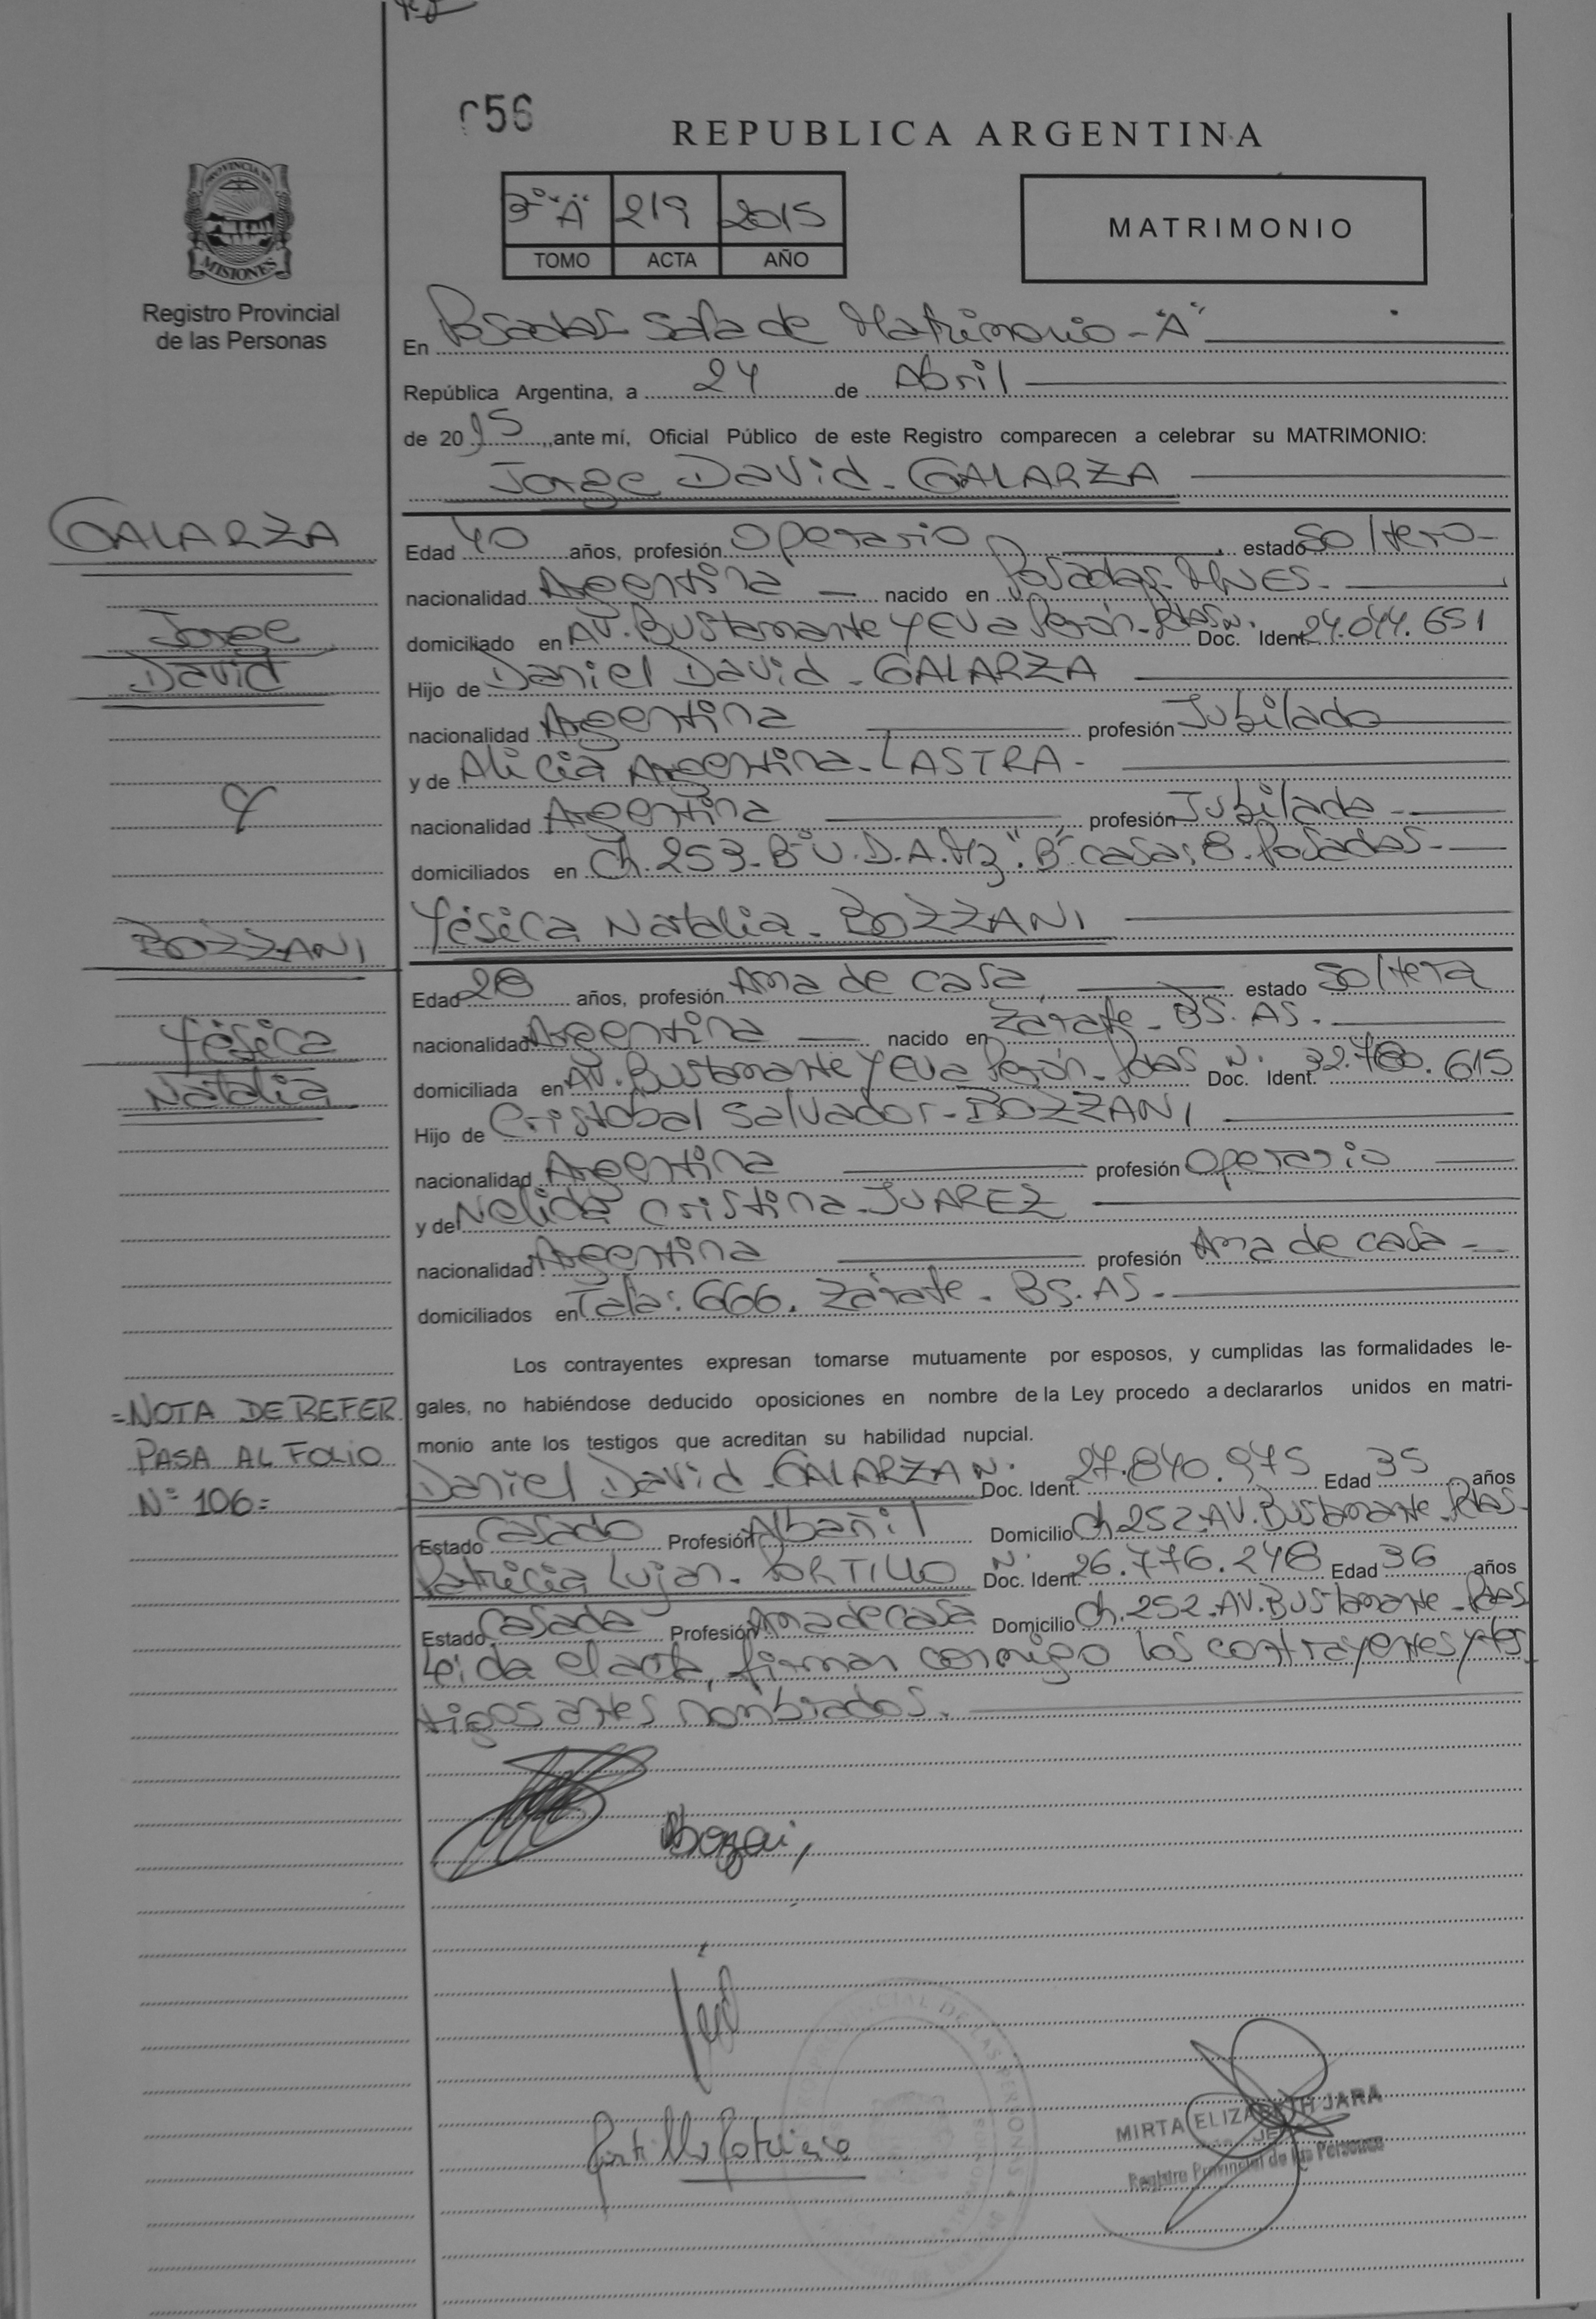 056
REPUBLICA ARGENTINA
3° "A" 219 2015
TOMO ACTA AÑO
MATRIMONIO
PROVINCIA DE
MISIONES
Registro Provincial
de las Personas
En Posadas Sala de Matrimonio - "A"
República Argentina, a 24 de Abril
de 2015, ante mí, Oficial Público de este Registro comparecen a celebrar su MATRIMONIO:
Jorge David - GALARZA
GALARZA
Jorge
David
Y
BOZZANI
Yésica
Natalia
Edad 40 años, profesión Operario estado Soltero -
nacionalidad Argentina nacido en Posadas. MNES.
domiciliado en AV. Bustamante Y Eva Perón - Pdas N. Doc. Ident. 24.044.651
Hijo de Daniel David - GALARZA
nacionalidad Argentina profesión Jubilado
y de Alicia Argentina - LASTRA -
nacionalidad Argentina profesión Jubilada -
domiciliados en Ch. 253 - B° U.D.A. Mz "B" casa: 8 - Posadas -
Yésica Natalia - BOZZANI
Edad 28 años, profesión Ama de casa estado Soltera
nacionalidad Argentina nacido en Zárate - BS. AS.
domiciliada en AV. Bustamante Y Eva Perón - Pdas N. Doc. Ident. 32.780.615
Hijo de Cristobal Salvador - BOZZANI
nacionalidad Argentina profesión Operario
y de Nelida Cristina - JUAREZ
nacionalidad Argentina profesión Ama de casa -
domiciliados en Tala: 666. Zárate - BS. AS.
Los contrayentes expresan tomarse mutuamente por esposos, y cumplidas las formalidades le-
gales, no habiéndose deducido oposiciones en nombre de la Ley procedo a declararlos unidos en matri-
monio ante los testigos que acreditan su habilidad nupcial.
=NOTA DE REFER
PASA AL FOLIO
N° 106=
Daniel David - GALARZA N. Doc. Ident. 27.840.975 Edad 35 años
Estado Casado Profesión Albañil Domicilio Ch. 252. AV. Bustamante - Pdas -
Patricia Lujan - PORTILLO N. Doc. Ident. 26.776.248 Edad 36 años
Estado Casada Profesión Ama de casa Domicilio Ch. 252. AV. Bustamante - Pdas
Leída el acta, firman conmigo los contrayentes y tes
tigos antes nombrados.
Portillo Patricia
MIRTA ELIZABETH JARA
Registro Provincial de las Personas